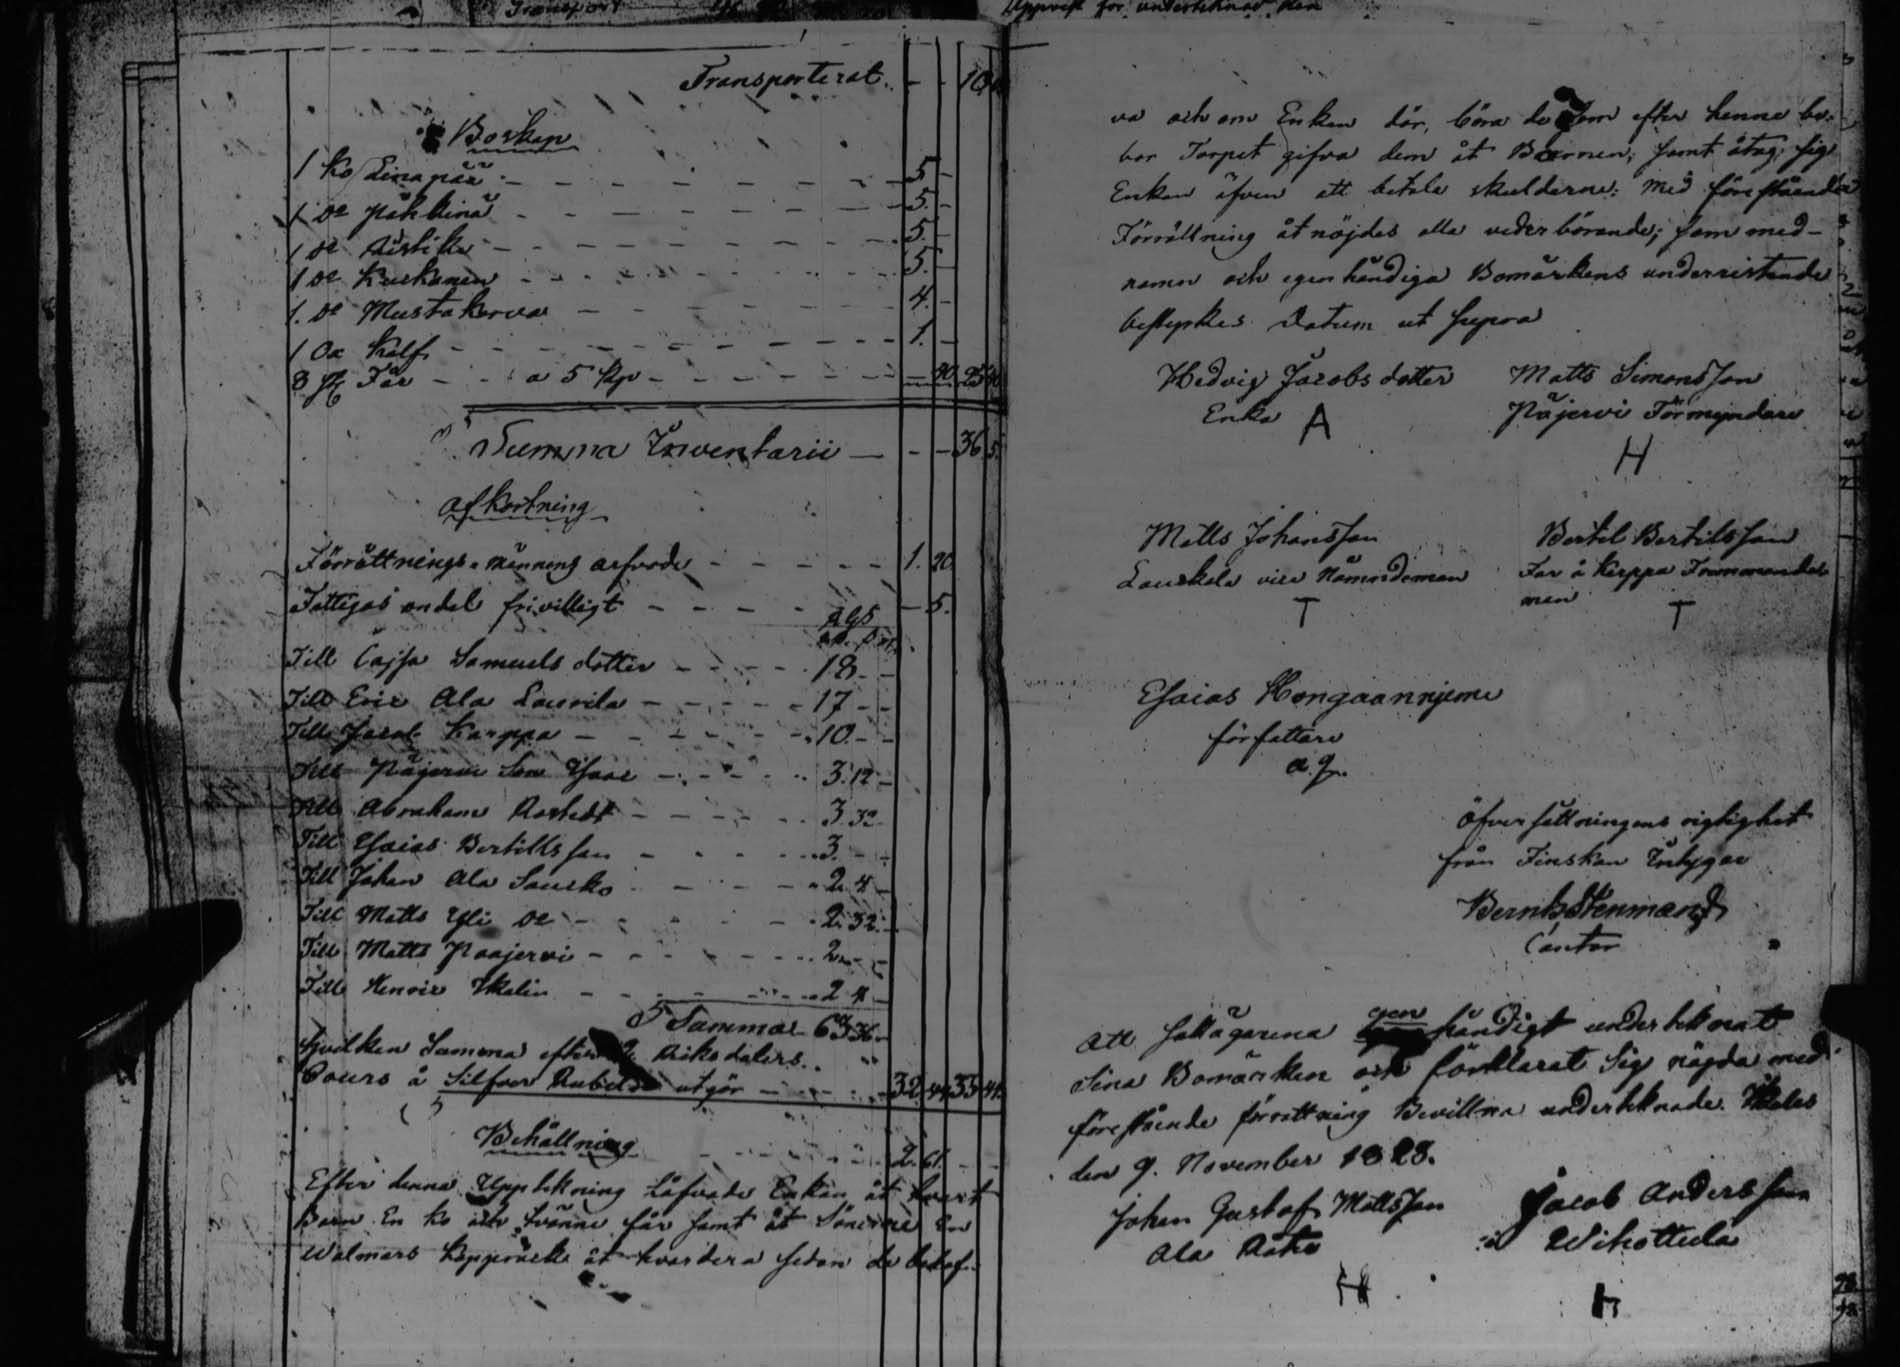 Transporterat - - 10
Boskap
1 Ko Einapää - - 5 -
1 Do Påhkinä - - 5. -
1 Do Ästike - - 5. -
1 Do Kuskanen - - 5. -
1. Do Mustakorva - - 4. -
1 Ox Kalf - - 1. -
8 st Får - - a 5 Kop - - 40 25 40
Summa Inventarii - - - 36 5.
Afkortning
Förrättnings männens arfvode - - 1. 20
Fattigas andel frivilligt - - - 5.
RGS
Till Cajsa Samuels dotter - - 18 - -
Till Eric Ala Laurila - - 17 - -
Till Jacob Karppa - - 10 - -
Till Päjervi Son Isaac - - 3. 12 -
Till Abraham - - 3 32
Till Esaias Bertilsson - - 3. - -
Till Johan Ala Sausko - - 2. 4 -
Till Matts Yli Do - - 2. 32 -
Till Matts Paajervi - - 2. - -
Till Henric - - 2 4 -
Summa 63 36
hvilken Summa efter Riksdalers
Cours à Silfver Rubel utgör - - 32 44 33 44
Behållning - - 2. 61. - -
Efter denna Uppteckning låfvade Enkan åt hvart
Barn En ko och tvänne får samt åt Sönerne En
Walmars Kapprock åt hvardera sedan de
va och om Enkan dör, böra de som efter henne be-
bor Torpet gifva dem åt Barnen; samt åtog sig
Enkan äfven att betala skulderne: Med föreståendes
Förrättning åtnöjdes alla vederbörande; som med
namn och egenhändiga Bomärkens underristande
bestyrkes Datum ut supra
Hedvig Jacobs dotter Matts Simonsson
Enka A Päjervi Förmyndare
H
Matts Johansson Bertel Bertilsson
Lauskala vice Nämndeman Far å Karppa
men
T T
Esaias Hongaannjemi
författare
Öfversättningens rigtighet
från Finskan Intygar
Stenmand
Cantor
Att Sakägarena egenhändigt undertecknat
Sina Bomärken och förklarat Sig nöjda med
förestående förrättning Bevittna undertecknade.
den 9. November 1828.
Johan Gustaf Mattsson Jacob Andersson
Ala Wihottula
H H